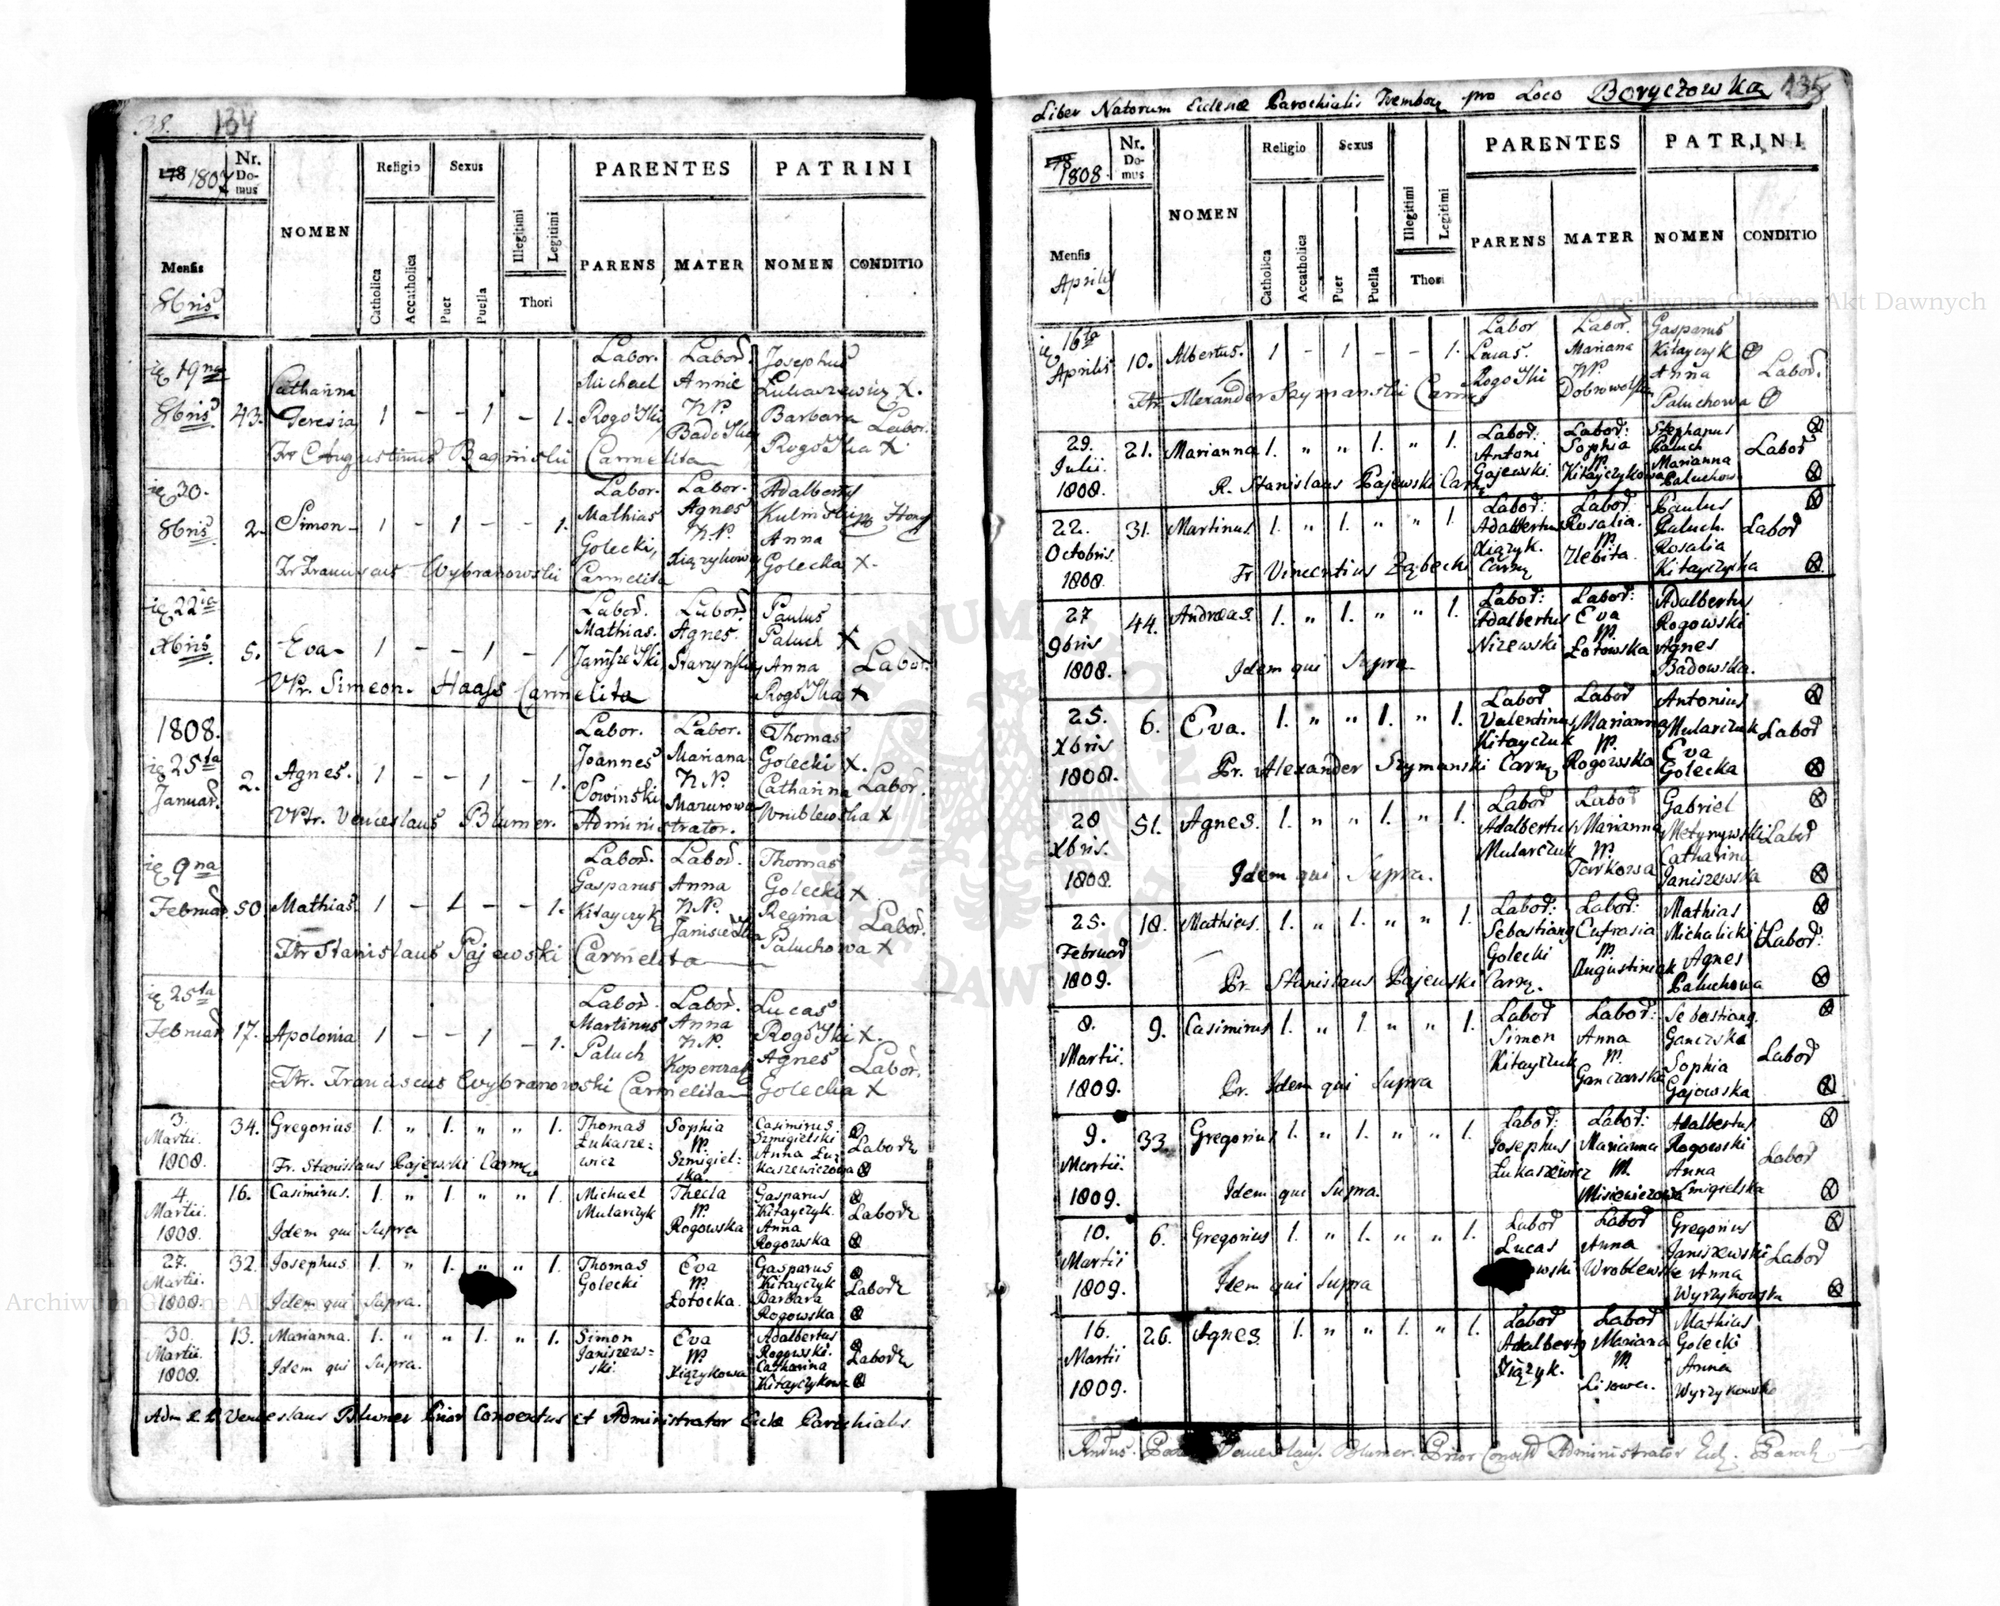 38. 134
178 1807 Nr. Domus NOMEN Religio Sexus Illegitimi Legitimi PARENTES PATRINI
Mensis Catholica Accatholica Puer Puella Thori PARENS MATER NOMEN CONDITIO
8bris
19na Labor. Labor. Josephus
Catharina Michael Annie Lukaszewicz X.
8bris 43. Teresia 1 – – 1 – 1. Rogo N. Barbara Labor.
Fr Augustinus Carmelita X
30. Labor. Labor. Adalberty
8bris 2 Simon 1 – 1 – – 1. Mathias Agnes
Golecki N. Anna
Fr Franciscus Wybranowski Carmelita Golecka X.
22ia Labor. Labor. Paulus
Xbris Mathias. Agnes. Paluch X
5. Eva 1 – – 1 – 1 Anna Labor.
Simeon. Haass Carmelita X
1808. Labor. Labor. Thomas
25ta Joannes Mariana Golecki X.
Januar. 2. Agnes. 1 – – 1 – 1. Sowinski N. Catharina Labor.
Venceslaus Blumer. Administrator. Wrublewska X
9na Labor. Labor. Thomas
Gasparus Anna Golecki X
Februar 50. Mathias 1 – 1 – – 1. Kitayczyk N. Regina Labor.
Fr Stanislaus Pajewski Carmelita Paluchowa X
25ta Labor Labor. Lucas
Februar 17. Apolonia 1 – – 1 – 1. Martinus Anna X.
Paluch N. Agnes Labor.
Fr. Franciscus Wybranowski Carmelita Golecka X
3. 34. Gregorius 1. „ 1. „ „ 1. Thomas Sophia Casimirus
Martii. Łukasze= Szmigielski Labor
1808. Fr. Stanislaus Pajewski Carm wicz Szmigiel= Anna Łu
ska. kaszewiczowa
4 16. Casimirus. 1. „ 1. „ „ 1. Michael Thecla Gasparus
Martii. Mularczyk Kitayczyk. Labor
1808. Idem qui supra Rogowska Anna
Rogowska
27. 32. Josephus 1. „ 1. „ „ 1. Thomas Eva Gasparus
Martii. Golecki Kitayczyk Labor
1808. Idem qui supra. Łotocka. Barbara
Rogowska
30. 13. Marianna. 1. „ „ 1. „ 1. Simon Eva Adalbertus
Martii. Janiszew= Rogowski. Labor
1808. Idem qui supra. ski. Xiązykowa Catharina
Kitayczykowa
Venceslaus Blumer Prior Conventus et Administrator Eccla Parochialis
Liber Natorum Eclesiæ Parochialis pro Loco Boryczowka 135
178 1808. Nr. Domus NOMEN Religio Sexus Illegitimi Legitimi PARENTES PATRINI
Mensis Catholica Accatholica Puer Puella Thori PARENS MATER NOMEN CONDITIO
Aprilis
16ta Labor Labor. Gasparus
Aprilis 10. Albertus. 1 – 1 – – 1. Lucas. Mariana Kitayczyk
N. Anna Labor.
Alexander Szymanski Carm Paluchowa
29. Labor: Labor: Stephanus
Julii. 21. Marianna 1. „ „ 1. „ 1. Antoni Sophia Paluch Labor
1808. Stanislaus Pajewski Carm Gajewski. Kitajczykowa Marianna
Paluchowa
22. Labor: Labor. Paulus
Octobris 31. Martinus 1. „ 1. „ „ 1. Adalbertus Rosalia. Paluch. Labor
1808. Fr. Vincentius Xiązyk. Rosalia
Kitayczycka
27 Labor: Labor: Adalbertus
9bris 44. Andreas. 1. „ 1. „ „ 1. Adalbertus Eva Rogowski
1808. Idem qui supra Nizewski Łotowska Agnes
Badowska.
25. Labor Labor Antonius
Xbris 6. Eva. 1. „ „ 1. „ 1. Valentinus Marianna Mularczuk Labor
1808. Pr. Alexander Szymanski Carm Kitayczuk Rogowska Eva
Golecka
28 Labor Labor Gabriel
Xbris. 51. Agnes. 1. „ „ 1. „ 1. Adalbertus Marianna Labor
1808. Idem qui supra. Mularczuk Torkowa Catharina
Janiszewska
25. Labor: Labor: Mathias
Februar 18. Mathias. 1. „ 1. „ „ 1. Sebastianus Eufrasia Michalicki Labor:
1809. Pr. Stanislaus Pajewski Carm. Golecki Augustiniak Agnes
Paluchowa
8. Labor Labor: Sebastianus
Martii. 9. Casimirus 1. „ 1. „ „ 1. Simon Anna Labor
1809. Pr. Idem qui supra Kitayczuk Ganczarska Sophia
Gajowska
9. Labor: Labor: Adalbertus
Martii. 33. Gregorius 1. „ 1. „ „ 1. Josephus Marianna Rogowski Labor
1809. Idem qui supra. Łukaszewicz Anna
Szmigielska
10. Labor Labor Gregorius
Martii 6. Gregorius 1. „ 1. „ „ 1. Lucas Anna Janiszewski Labor
1809. Idem qui supra owski Wroblewska Anna
Wyrzykowska
16. Labor Labor Mathias
Martii 26. Agnes. 1. „ „ 1. „ 1. Adalberty Mariana Golecki
1809. Xiązyk. Anna
Wyrzykowska
Blumer. Prior Administrator
Archiwum Główne Akt Dawnych
Archiwum Główne Akt Dawnych
ARCHIWUM GŁÓWNE AKT DAWNYCH